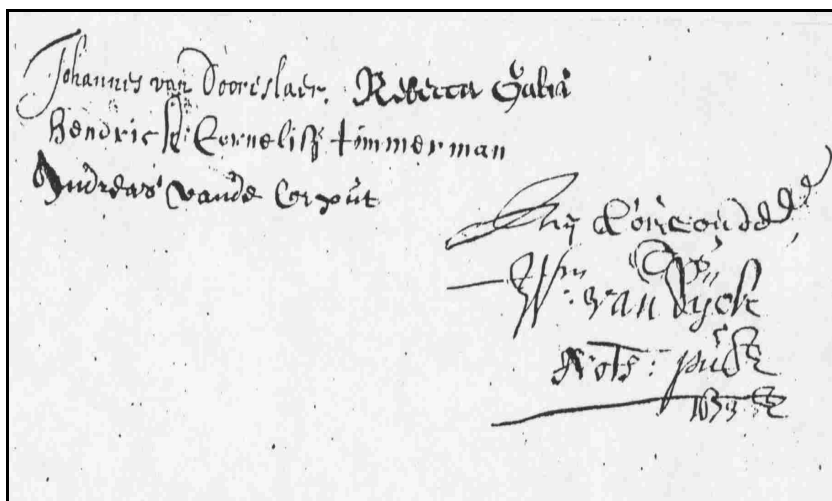 Johannes van Dooreslaer. Rebecca Gabri
Hendrick Cornelisz timmerman
Andreas vande Corput
My t'oirconde
Wm. van Dyck
Nots: pub
1633